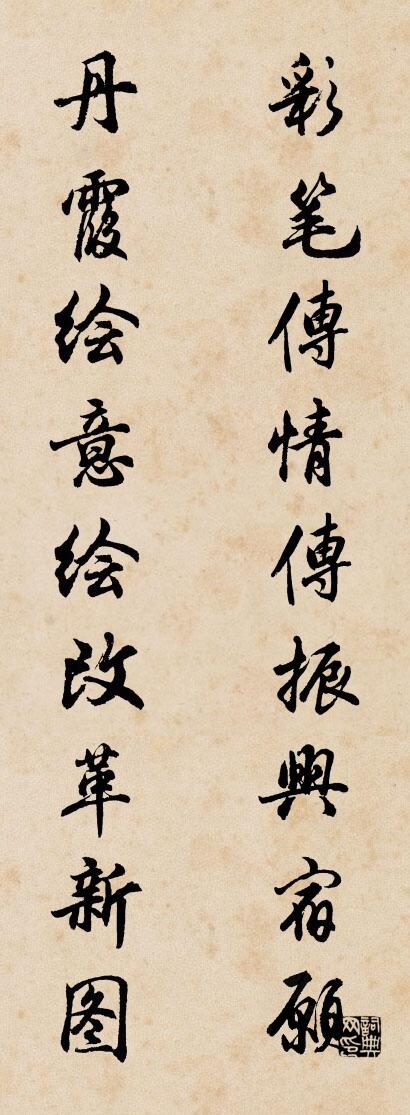 彩笔傳情傳振興宿願
丹霞绘意绘改革新图
詞典网印